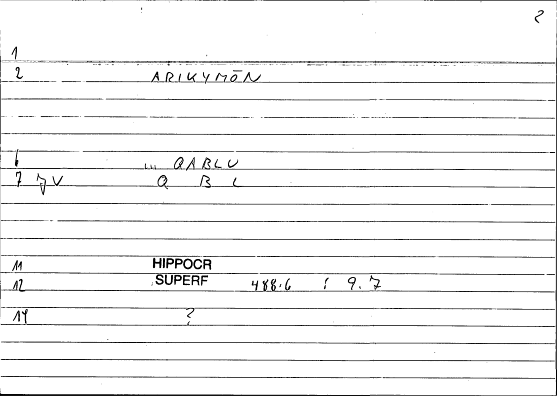 2
1
2 ARIKYMŌN
6 ... QABLU
7 JV Q B L
11 HIPPOCR
12 SUPERF 488.6 : 9.7
14 ?